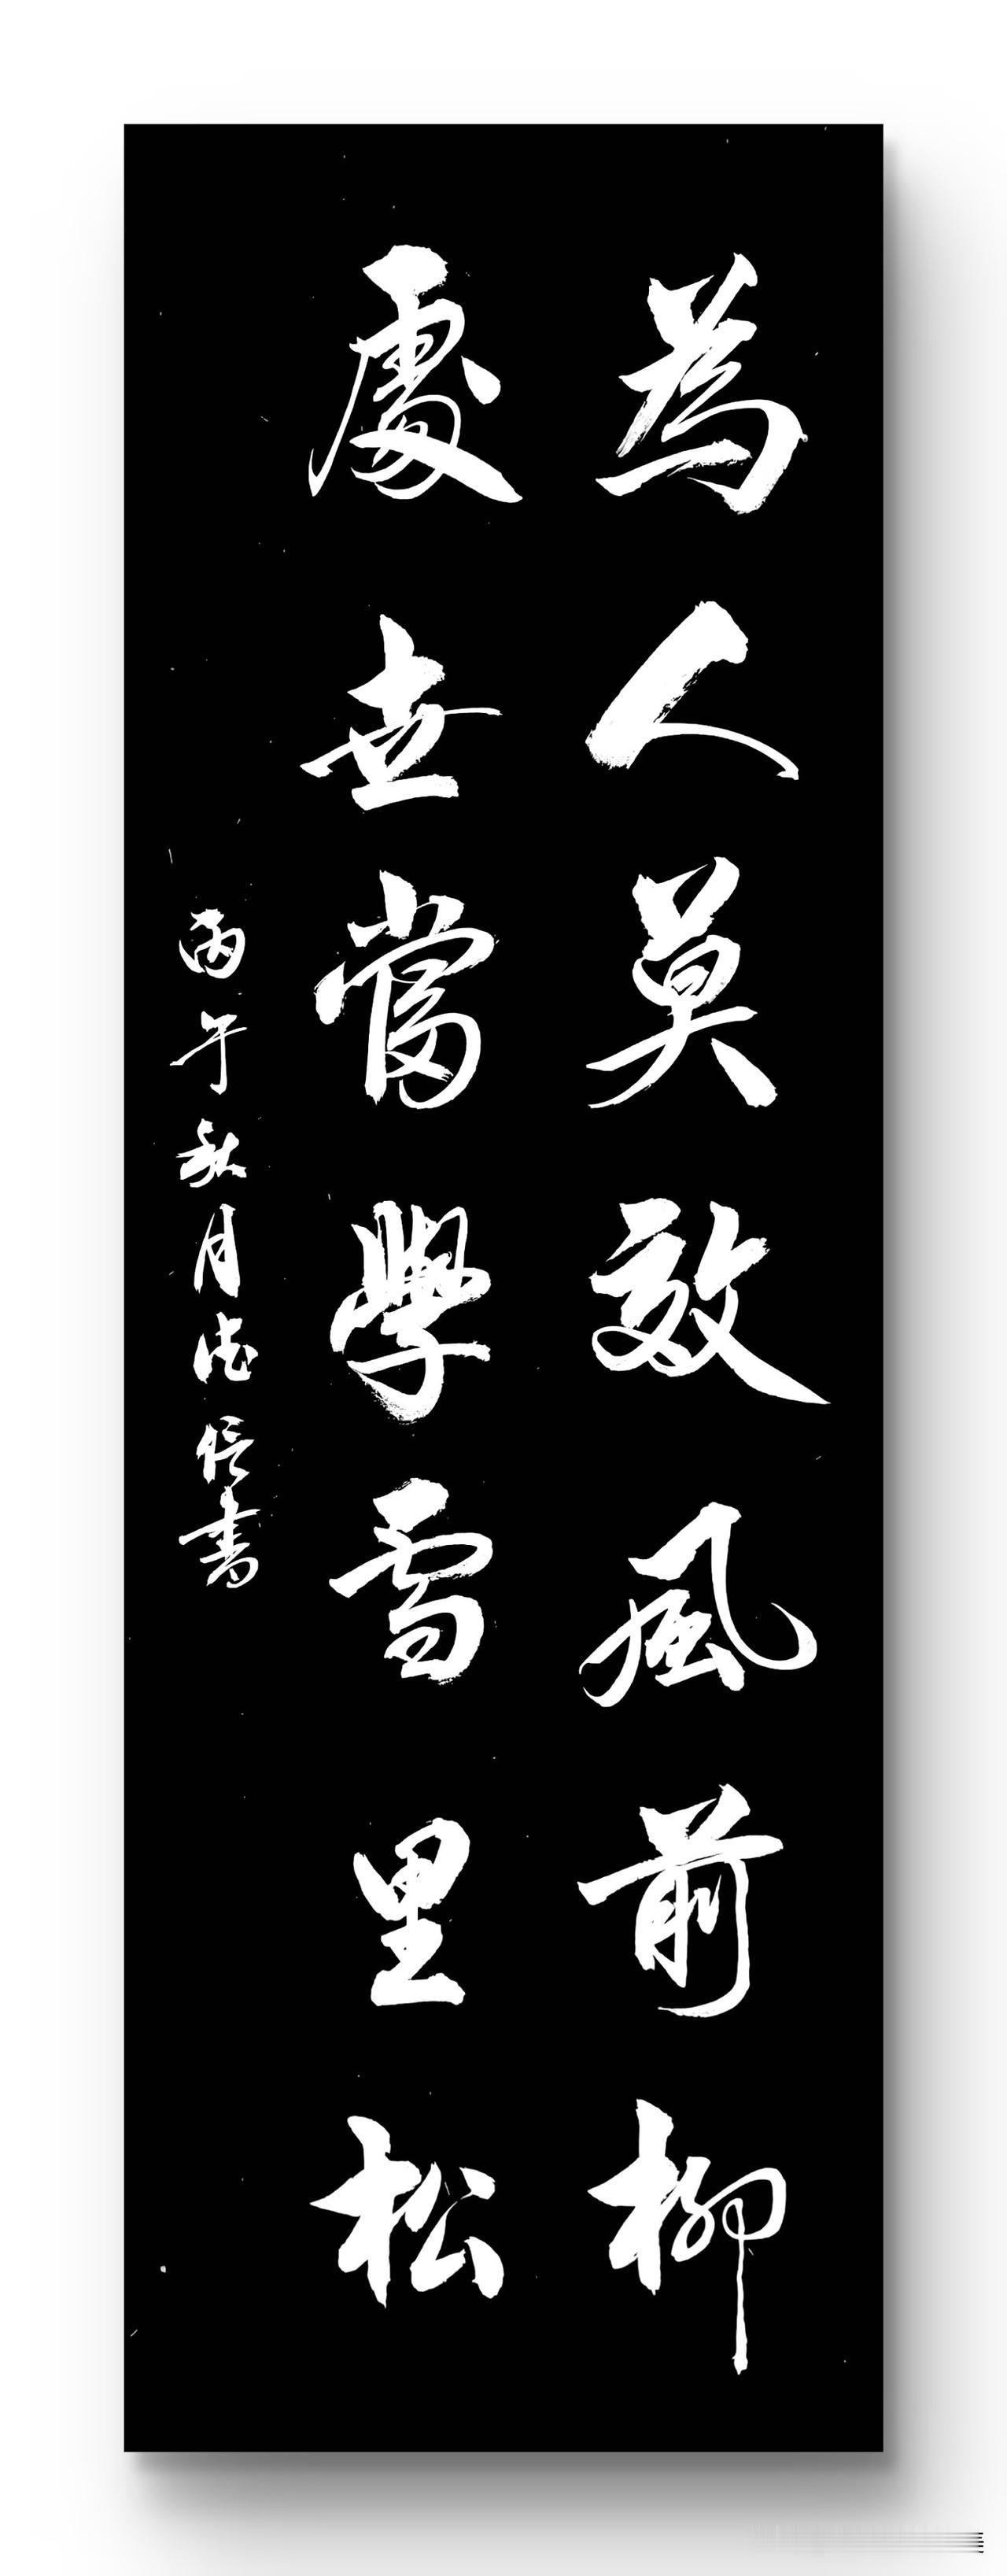 為人莫效風前柳
處世當學雪里松
丙午秋月德信書